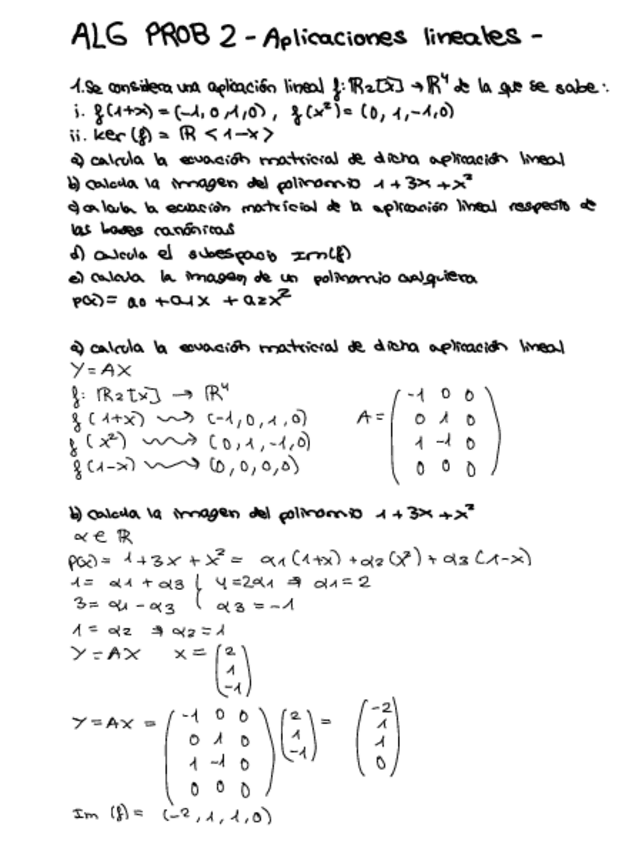 ALG PROB 2 - Aplicaciones lineales -
1. Se considera una aplicación lineal f: ℝ₂[x] → ℝ⁴ de la que se sabe:
i. f(1+x) = (-1, 0, 1, 0), f(x²) = (0, 1, -1, 0)
ii. ker(f) = ℝ <1-x>
a) calcula la ecuación matricial de dicha aplicación lineal
b) calcula la imagen del polinomio 1+3x+x²
c) calcula la ecuación matricial de la aplicación lineal respecto de
las bases canónicas
d) calcula el subespacio Im(f)
e) calcula la imagen de un polinomio cualquiera
p(x) = a₀ + a₁x + a₂x²
a) calcula la ecuación matricial de dicha aplicación lineal
Y = AX
f: ℝ₂[x] → ℝ⁴
f(1+x) ⟿ (-1, 0, 1, 0)
f(x²) ⟿ (0, 1, -1, 0)
f(1-x) ⟿ (0, 0, 0, 0)
A =
-1 0 0
0 1 0
1 -1 0
0 0 0
b) calcula la imagen del polinomio 1+3x+x²
α ∈ ℝ
p(x) = 1+3x+x² = α1(1+x) + α2(x²) + α3(1-x)
1 = α1 + α3 { 4 = 2α1 ⇒ α1 = 2
3 = α1 - α3 { α3 = -1
1 = α2 ⇒ α2 = 1
Y = AX x =
2
1
-1
Y = AX = =
-1 0 0 2 -2
0 1 0 1 1
1 -1 0 -1 1
0 0 0 0
Im (f) = (-2, 1, 1, 0)